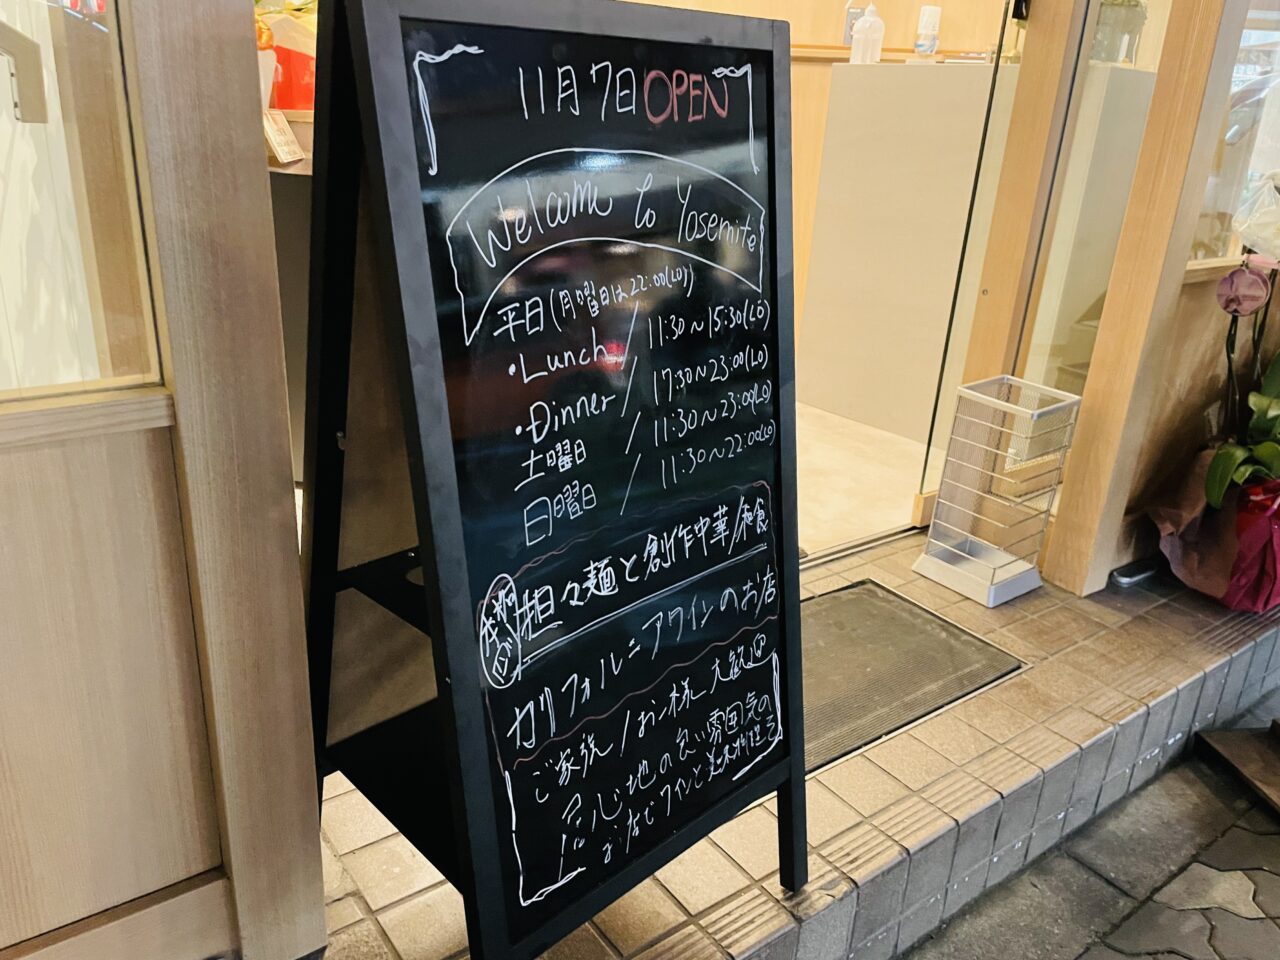 11月7日OPEN
Welcome to Yosemite
平日(月曜日は22:00(LO))
・Lunch / 11:30～15:30(LO)
・Dinner / 17:30～23:00(LO)
土曜日 / 11:30～23:00(LO)
日曜日 / 11:30～22:00(LO)
担々麺と創作中華/和食
カリフォルニアワインのお店
ご家族/お一人様 大歓迎
居心地の良い雰囲気の
お店でワインと美味料理を